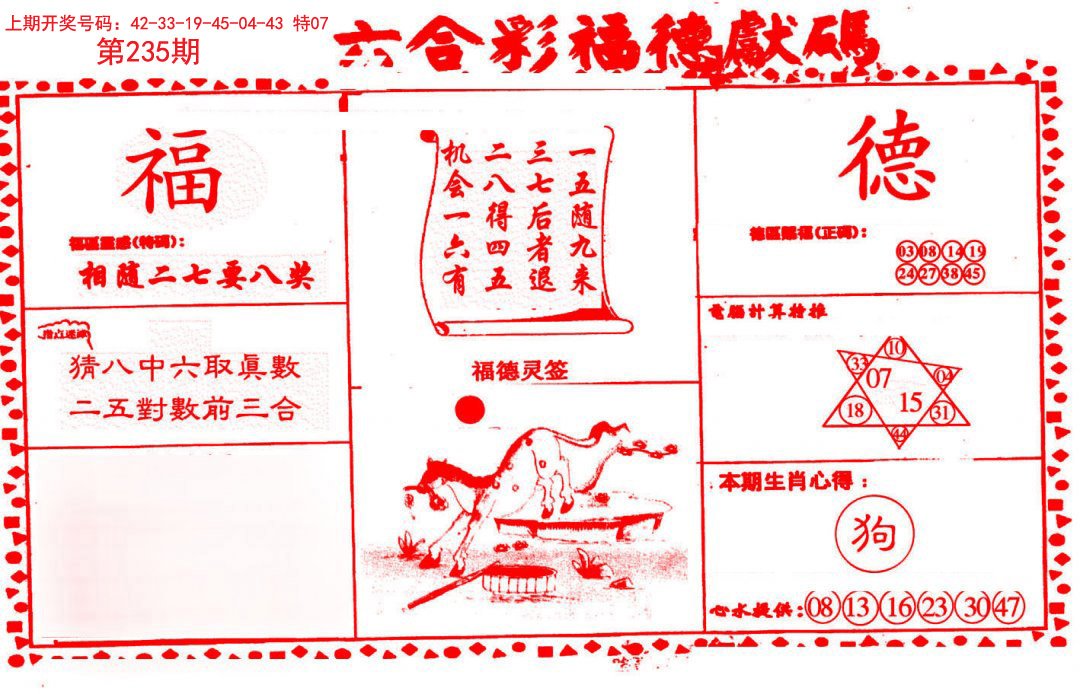 上期开奖号码：42-33-19-45-04-43 特07
第235期
六合彩福德獻碼
福
福區靈感(特碼)：
相随二七要八奖
猜八中六取真數
二五對數前三合
一五随九来
三七后者退
二八得四五
机会一六有
福德灵签
德
德區賜福(正碼)：
03 08 14 19
24 27 38 45
電腦計算特推
10
33 04
07
15
18 31
44
本期生肖心得：
狗
心水提供：08 13 16 23 30 47